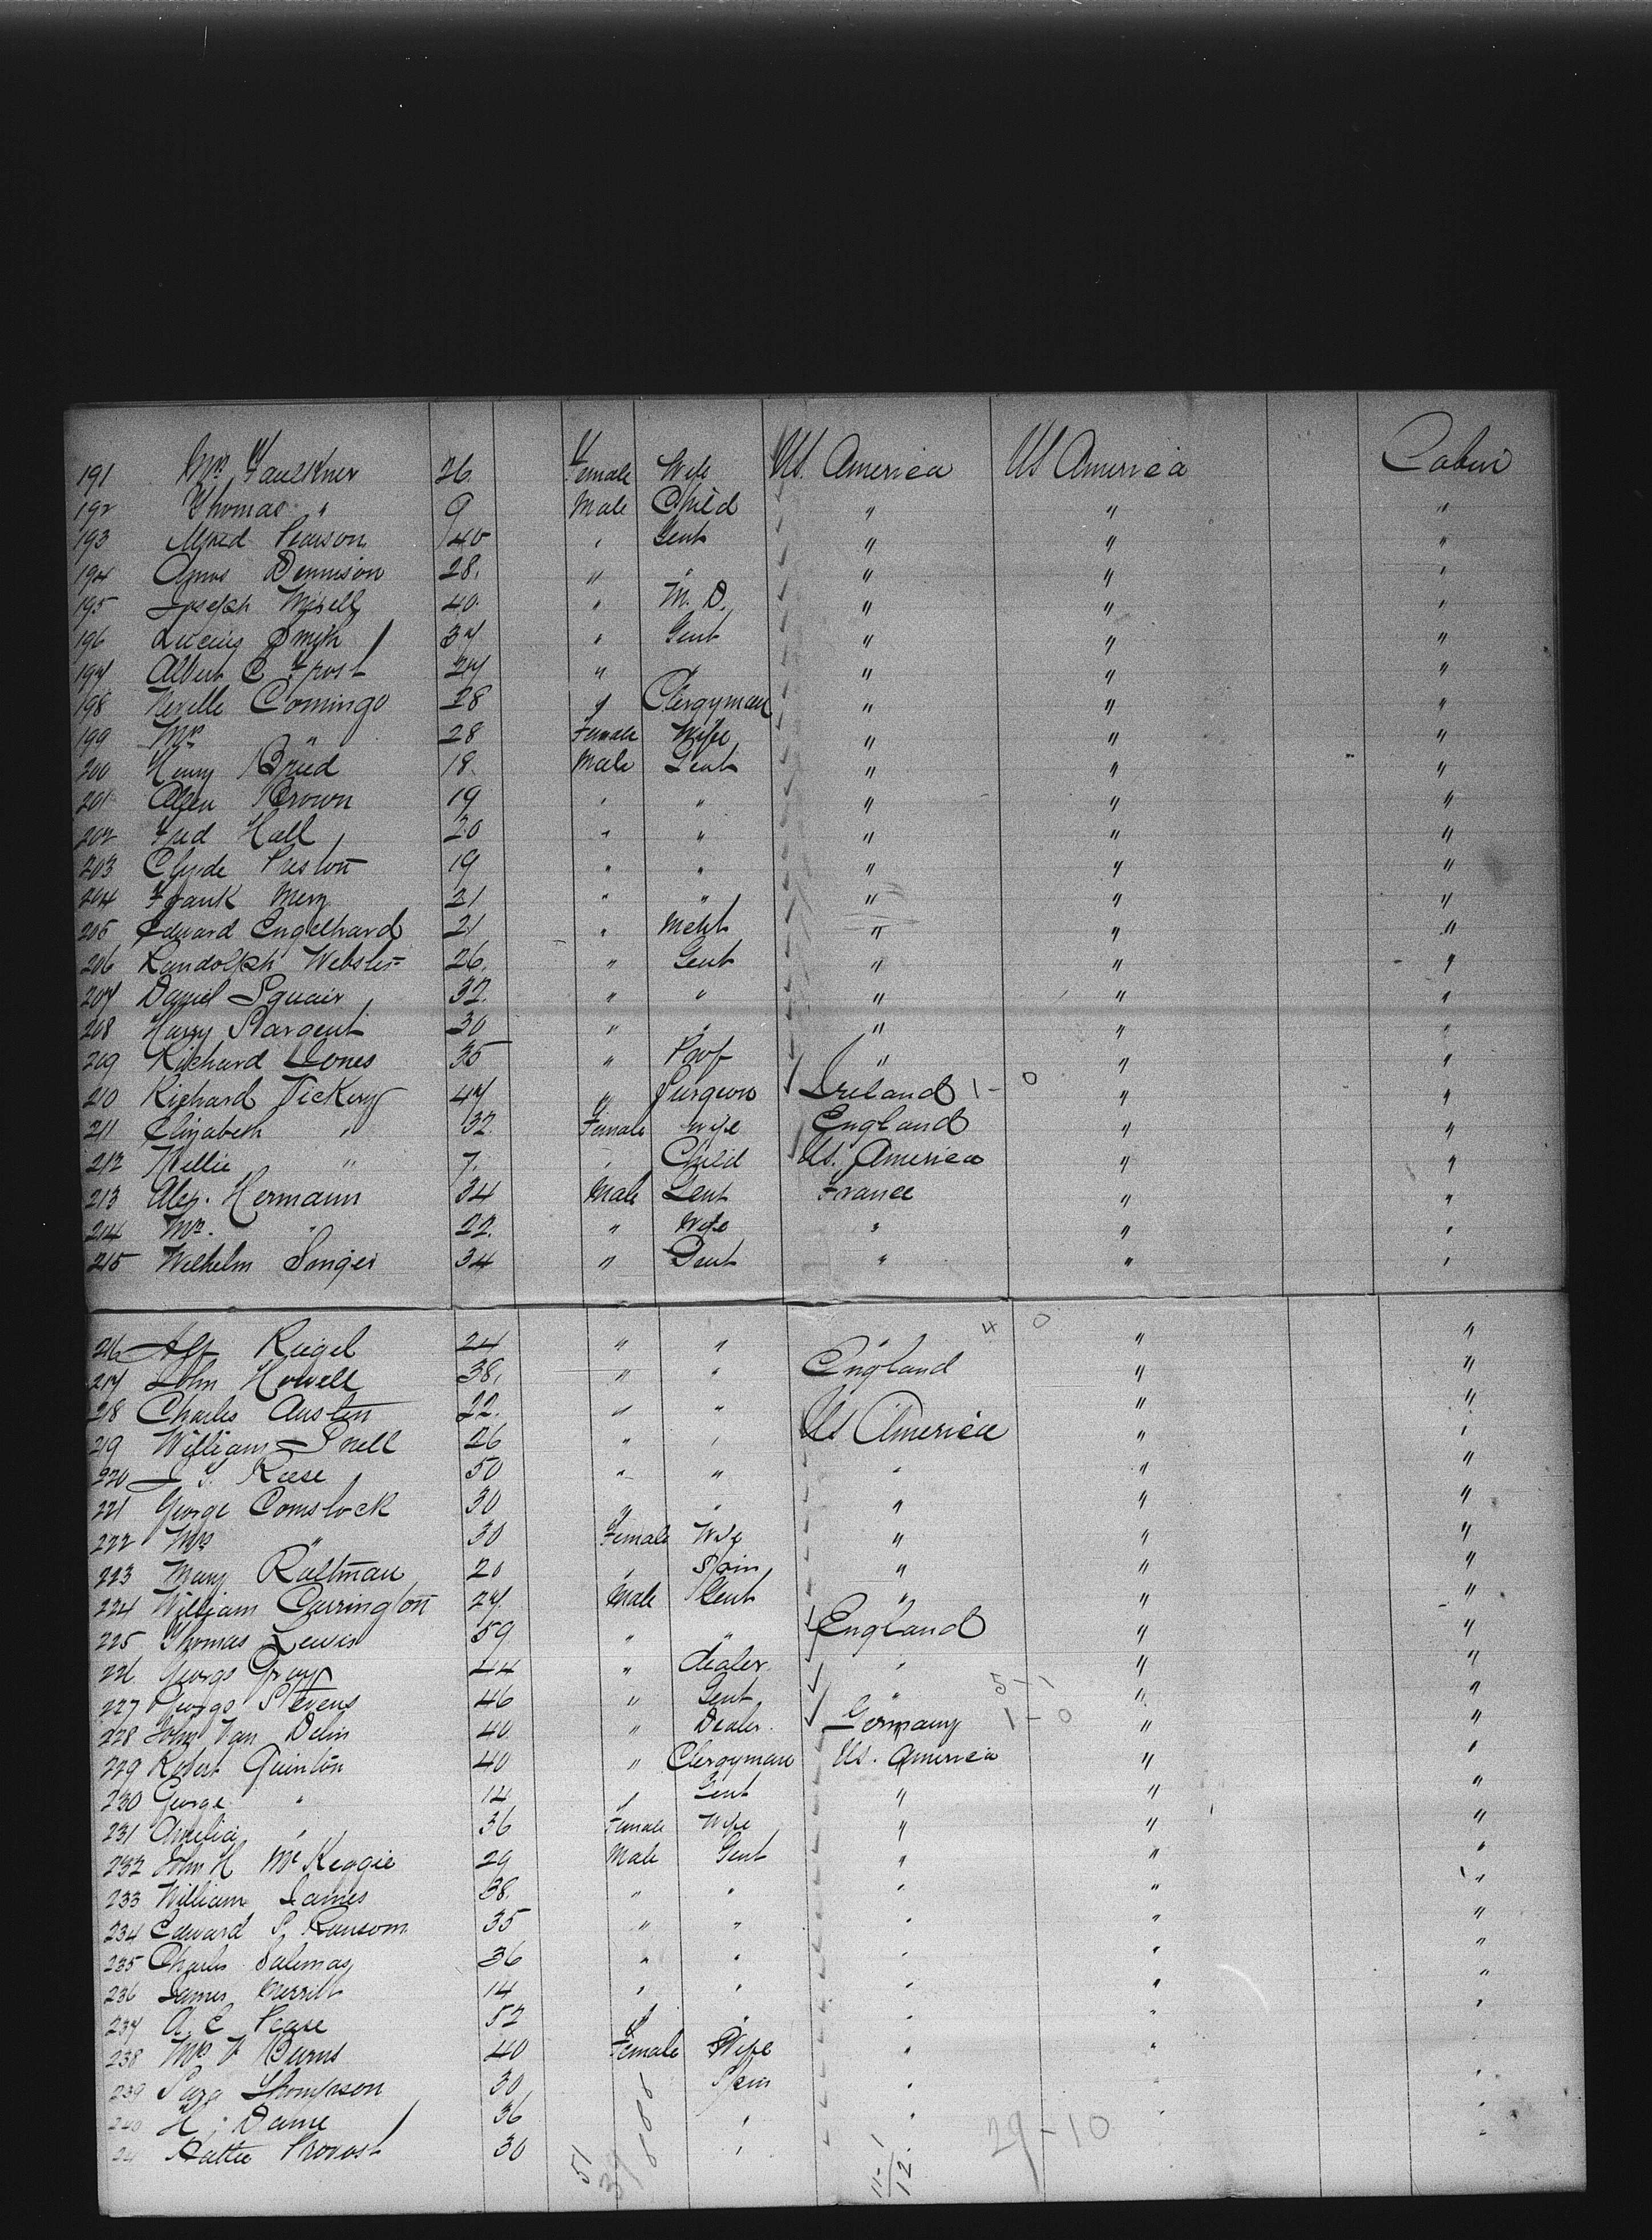 191 Mrs Faulkner 26. Female Wife U.S. America US America Cabin
192 Thomas " 9 Male Child " " "
193 Alfred Pearson 40 " Gent " " "
194 Amos Dennison 28. " " " " "
195 Joseph 40. " M. D. " " "
196 Lucius Smith 37 " Gent " " "
197 Albert C Frost 27 " " " " "
198 Neville Comingo 28 " Clergyman " " "
199 Mrs " 28 Female Wife " " "
200 Henry 18. Male Gent " " "
201 Allen Brown 19 " " " " "
202 Fred Hall 20 " " " " "
203 Clyde Preston 19 " " " " "
204 Frank Merz 21 " " " " "
205 Edward Engelhard 21 " Mcht " " "
206 Randolph Webster 26. " Gent " " "
207 Daniel Squair 32. " " " " "
208 Harry Sargent 30 " " " " "
209 Richard Jones 35 " Prof " " "
210 Richard Vickery 47 " Surgeon Ireland 1-0 " "
211 Elizabeth " 32 Female Wife England " "
212 Willie " 7. " Child U.S. America " "
213 Alex. Hermann 34 Male Gent France " "
214 Mrs. " 22. " Wife " " "
215 Wilhelm 34 " Gent " " "
216 Alf Riegel 24 " " " 4 0 " "
217 John Howell 38. " " England " "
218 Charles Austin 22. " " " "
219 William Snell 26 " " US America " "
220 Reese 50 " " " " "
221 George Comstock 30 " " " " "
222 Mrs " 30 Female Wife " " "
223 Mary 20 " Spin " " "
224 William Carrington 27. Male Gent " " "
225 Thomas Lewis 59 " " England " "
226 George Gray 44 " dealer " " "
227 George Stevens 46 " Gent " 5-1 " "
228 John Van 40. " Dealer. Germany 1-0 " "
229 Robert Quinton 40 " Clergyman U.S. America " "
230 George " 14 " Gent " " "
231 Amelia " 36 Female Wife " " "
232 John H 29 Male Gent " " "
233 William James 38. " " " " "
234 Edward S. Ransom 35 " " " " "
235 Charles 36 " " " " "
236 James Merrill 14 " " " " "
237 A. E. Pease 52 " " " " "
238 Mrs Burns 40 Female Wife " "
239 Sara Thompson 30 " Spin " "
240 H. Dame 36 " " " " "
24 Hattie Provost 30 " " " "
51 39 11 12 29-10